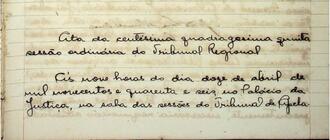 Ata da centéssima quadragesima quinta
sessão ordinária do Tribunal Regional
Ás nove horas do dia doze de abril de
mil novecentos e quarenta e seis no Palácio da
Justiça, na sala das sessões do Tribunal de Apela